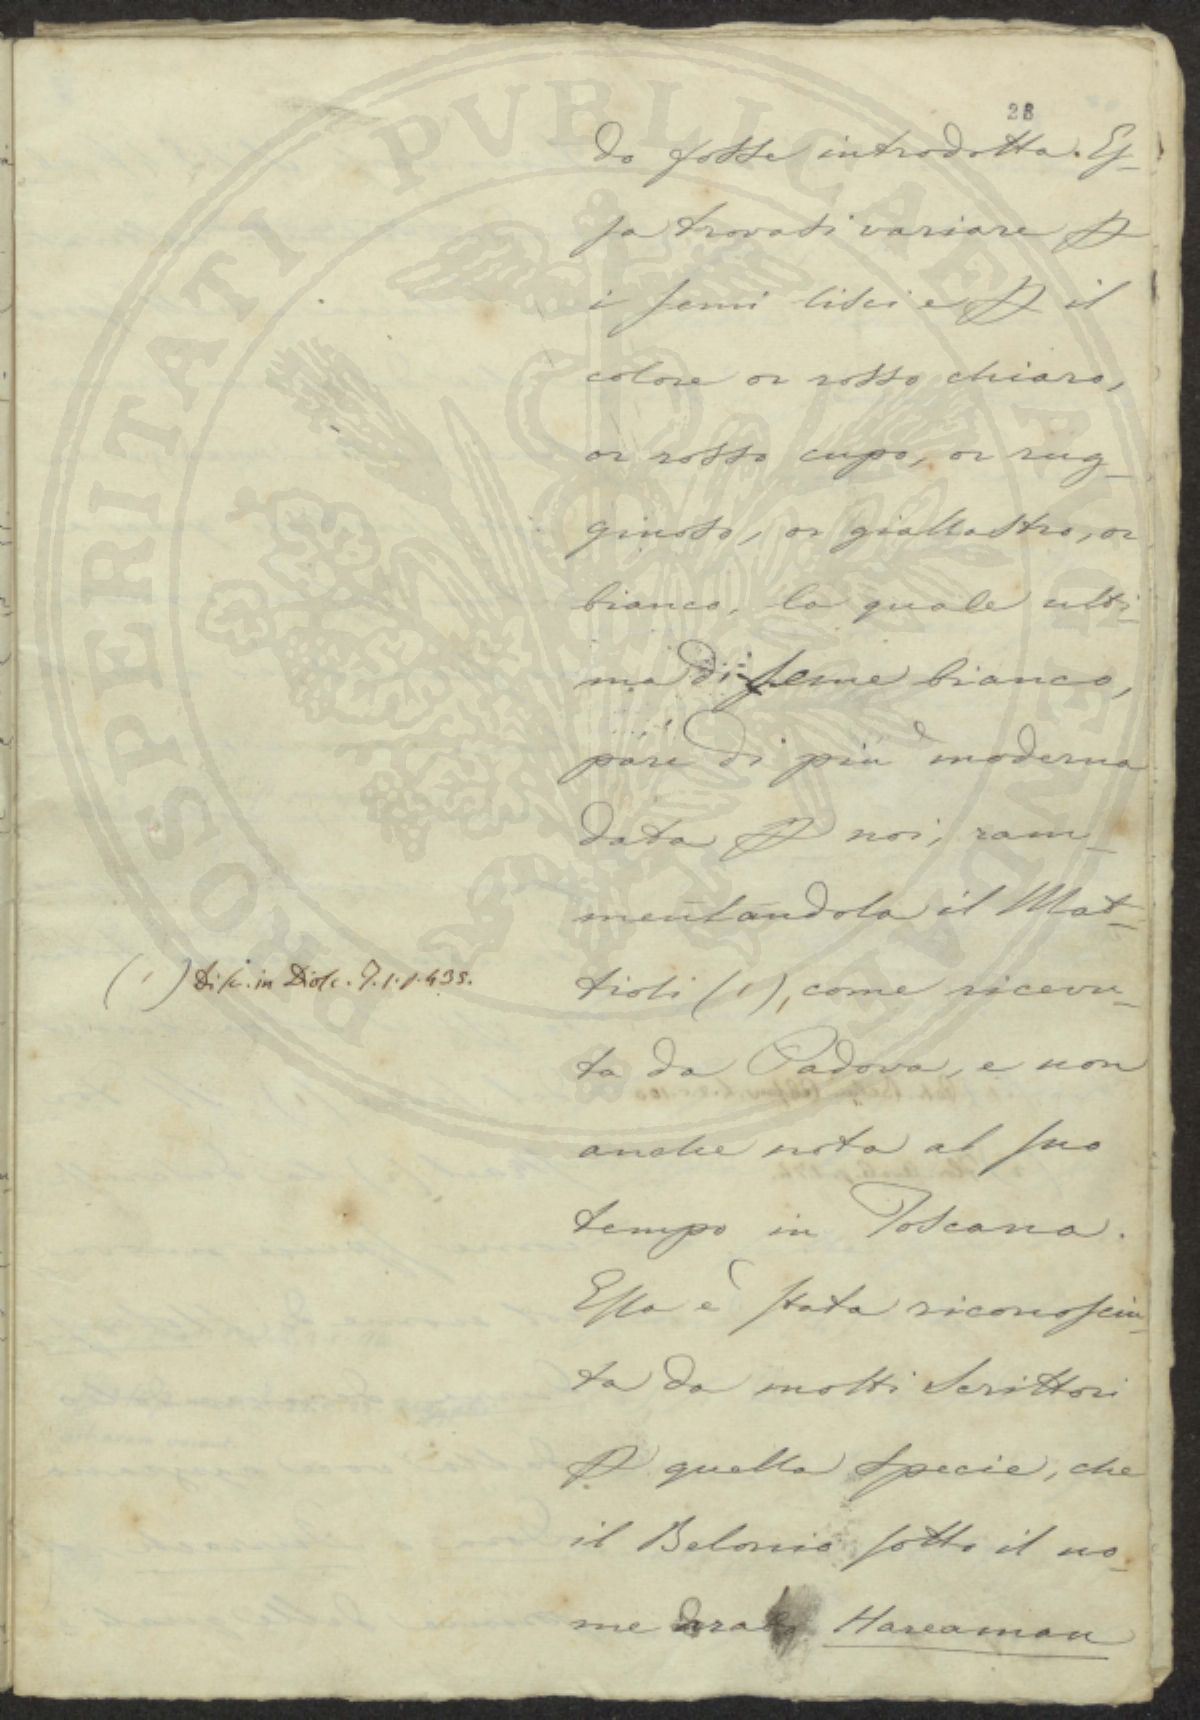 28
do fosse introdotta. Es-
sa trovasi variare p
i semi lisci e p il
colore or rosso chiaro,
or rosso cupo, or rug-
ginoso, or giallastro, or
bianco, la quale ulti-
ma di seme bianco,
pare di più moderna
data p noi, ram-
mentandola il Mat-
tioli (1), come ricevu-
ta da Padova, e non
anche nota al suo
tempo in Toscana.
Essa è stata riconosciu-
ta da molti Scrittori
p quella specie, che
il Belonio sotto il no-
me arabo Hareaman
(1) Disc. in Diosc. T. 1. p. 438.
PROSPERITATI PVBLICAE AVGENDAE